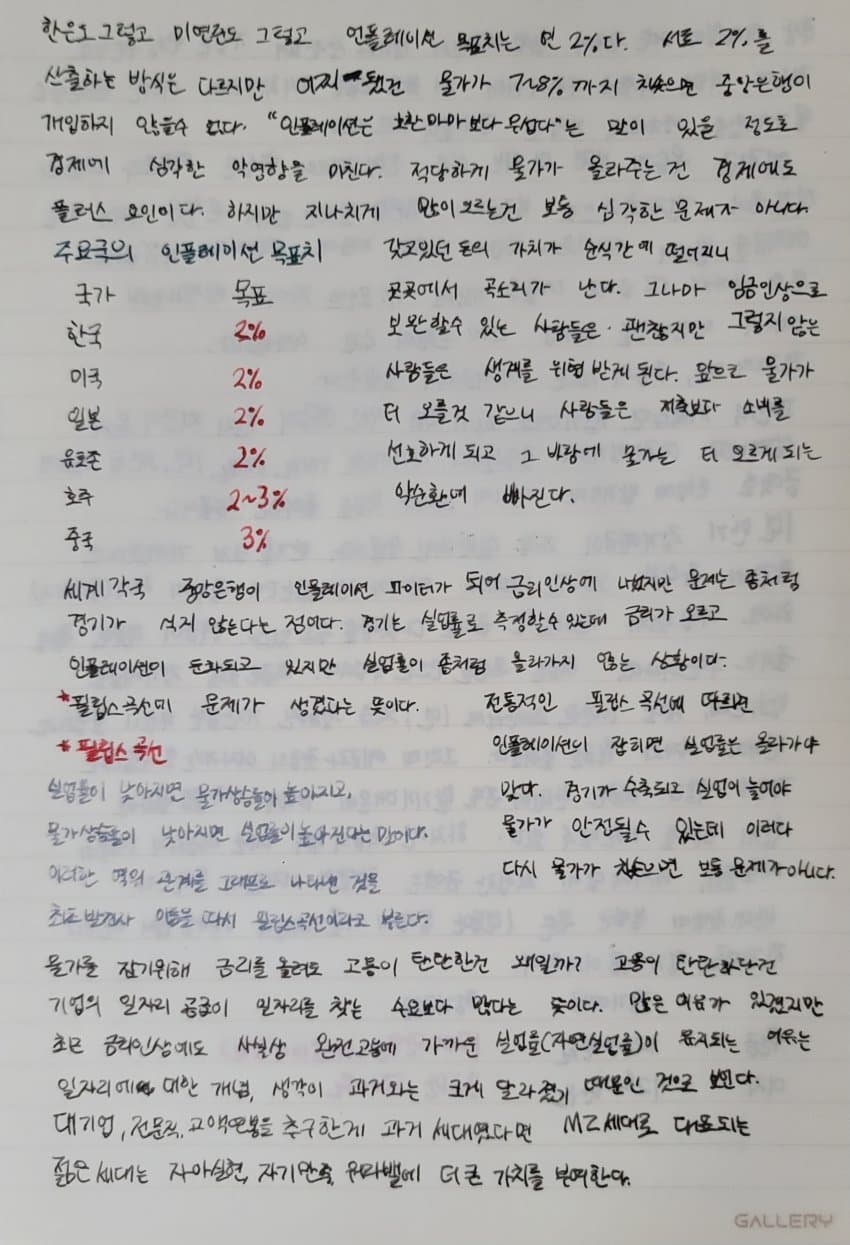 한은도 그렇고 미연준도 그렇고 인플레이션 목표치는 연 2%다. 서로 2%를
산출하는 방식은 다르지만 어찌 됐건 물가가 7~8%까지 치솟으면 중앙은행이
개입하지 않을수 없다. "인플레이션은 호환마마보다 무섭다"는 말이 있을 정도로
경제에 심각한 악영향을 미친다. 적당하게 물가가 올라주는건 경제에도
플러스 요인이다. 하지만 지나치게 많이 오르는건 보통 심각한 문제가 아니다.
주요국의 인플레이션 목표치
국가 목표
한국 2%
미국 2%
일본 2%
유로존 2%
호주 2~3%
중국 3%
갖고있던 돈의 가치가 순식간에 떨어지니
곳곳에서 곡소리가 난다. 그나마 임금인상으로
보완할수 있는 사람들은 괜찮지만 그렇지 않은
사람들은 생계를 위협 받게 된다. 앞으로 물가가
더 오를것 같으니 사람들은 저축보다 소비를
선호하게 되고 그 바람에 물가는 더 오르게 되는
악순환에 빠진다.
세계 각국 중앙은행이 인플레이션 파이터가 되어 금리인상에 나섰지만 문제는 좀처럼
경기가 식지 않는다는 점이다. 경기는 실업률로 측정할수 있는데 금리가 오르고
인플레이션이 둔화되고 있지만 실업률이 좀처럼 올라가지 않는 상황이다.
*필립스곡선에 문제가 생겼다는 뜻이다.
* 필립스 곡선
실업률이 낮아지면 물가상승률이 높아지고,
물가상승률이 낮아지면 실업률이 높아진다는 말이다.
이러한 역의 관계를 그래프로 나타낸 것을
최초 발견자 이름을 따서 필립스곡선이라고 부른다.
전통적인 필립스 곡선에 따르면
인플레이션이 잡히면 실업률은 올라가야
맞다. 경기가 수축되고 실업이 늘어야
물가가 안정될수 있는데 이러다
다시 물가가 치솟으면 보통 문제가 아니다.
물가를 잡기위해 금리를 올려도 고용이 탄탄한건 왜일까? 고용이 탄탄하단건
기업의 일자리 공급이 일자리를 찾는 수요보다 많다는 뜻이다. 많은 이유가 있겠지만
최근 금리인상에도 사실상 완전고용에 가까운 실업률(자연실업률)이 유지되는 이유는
일자리에 대한 개념, 생각이 과거와는 크게 달라졌기 때문인 것으로 보인다.
대기업, 전문직, 고액연봉을 추구한게 과거 세대였다면 MZ세대로 대표되는
젊은 세대는 자아실현, 자기만족, 워라밸에 더 큰 가치를 부여한다.
GALLERY